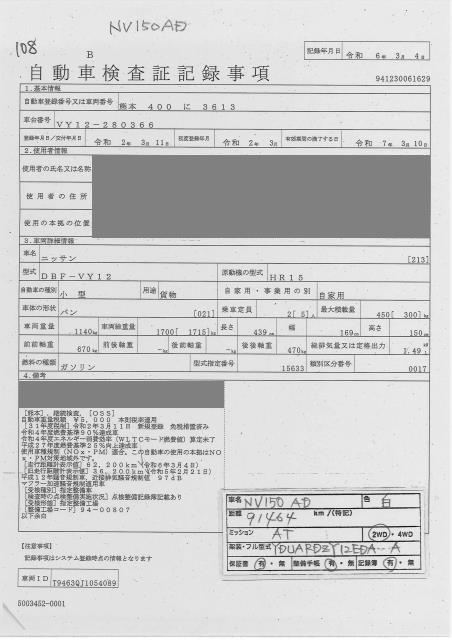 NV150AD
108
B
記録年月日 令和 6年 3月 4日
自動車検査証記録事項
941230061629
1.基本情報
自動車登録番号又は車両番号 熊本 400 に 3613
車台番号 VY12-280366
登録年月日/交付年月日 令和 2年 3月 11日 初度登録年月 令和 2年 3月 有効期間の満了する日 令和 7年 3月 10日
2.使用者情報
使用者の氏名又は名称
使用者の住所
使用の本拠の位置
3.車両詳細情報
車名 ニッサン [213]
型式 DBF-VY12 原動機の型式 HR15
自動車の種別 小型 用途 貨物 自家用・事業用の別 自家用
車体の形状 バン [021] 乗車定員 2[ 5]人 最大積載量 450[ 300]kg
車両重量 1140kg 車両総重量 1700[ 1715]kg 長さ 439cm 幅 169cm 高さ 150cm
前前軸重 670kg 前後軸重 -kg 後前軸重 -kg 後後軸重 470kg 総排気量又は定格出力 1.49L
燃料の種類 ガソリン 型式指定番号 15633 類別区分番号 0017
4.備考
[熊本],継続検査,[OSS]
自動車重量税額 ¥5,000 本則税率適用
[31年度税制]令和2年3月11日 新規登録 免税措置済み
令和4年度燃費基準90%達成車
令和4年度エネルギー消費効率(WLTCモード燃費値)算定未了
平成27年度燃費基準25%向上達成車
使用車種規制(NOx・PM)適合,この自動車の使用の本拠はNO
x・PM対策地域外です。
[走行距離計表示値]62,200km(令和6年3月4日)
[旧走行距離計表示値]36,200km(令和5年2月21日)
平成12年騒音規制車,近接排気騒音規制値 97dB
マフラー加速騒音規制適用車
[受検種別]指定整備車
[検査時の点検整備実施状況]点検整備記録簿記載あり
[受検形態]指定整備工場
[整備工場コード]94-00807
以下余白
車名 NV150 AD 色 白
距離 91464 km/(特記)
ミッション AT 2WD・4WD
架装・フル型式
保証書 有・無 整備手帳 有・無 記録簿 有・無
[注意事項]
記録事項はシステム登録時点の情報となります
車両ID T9463QJ1054089
5003452-0001